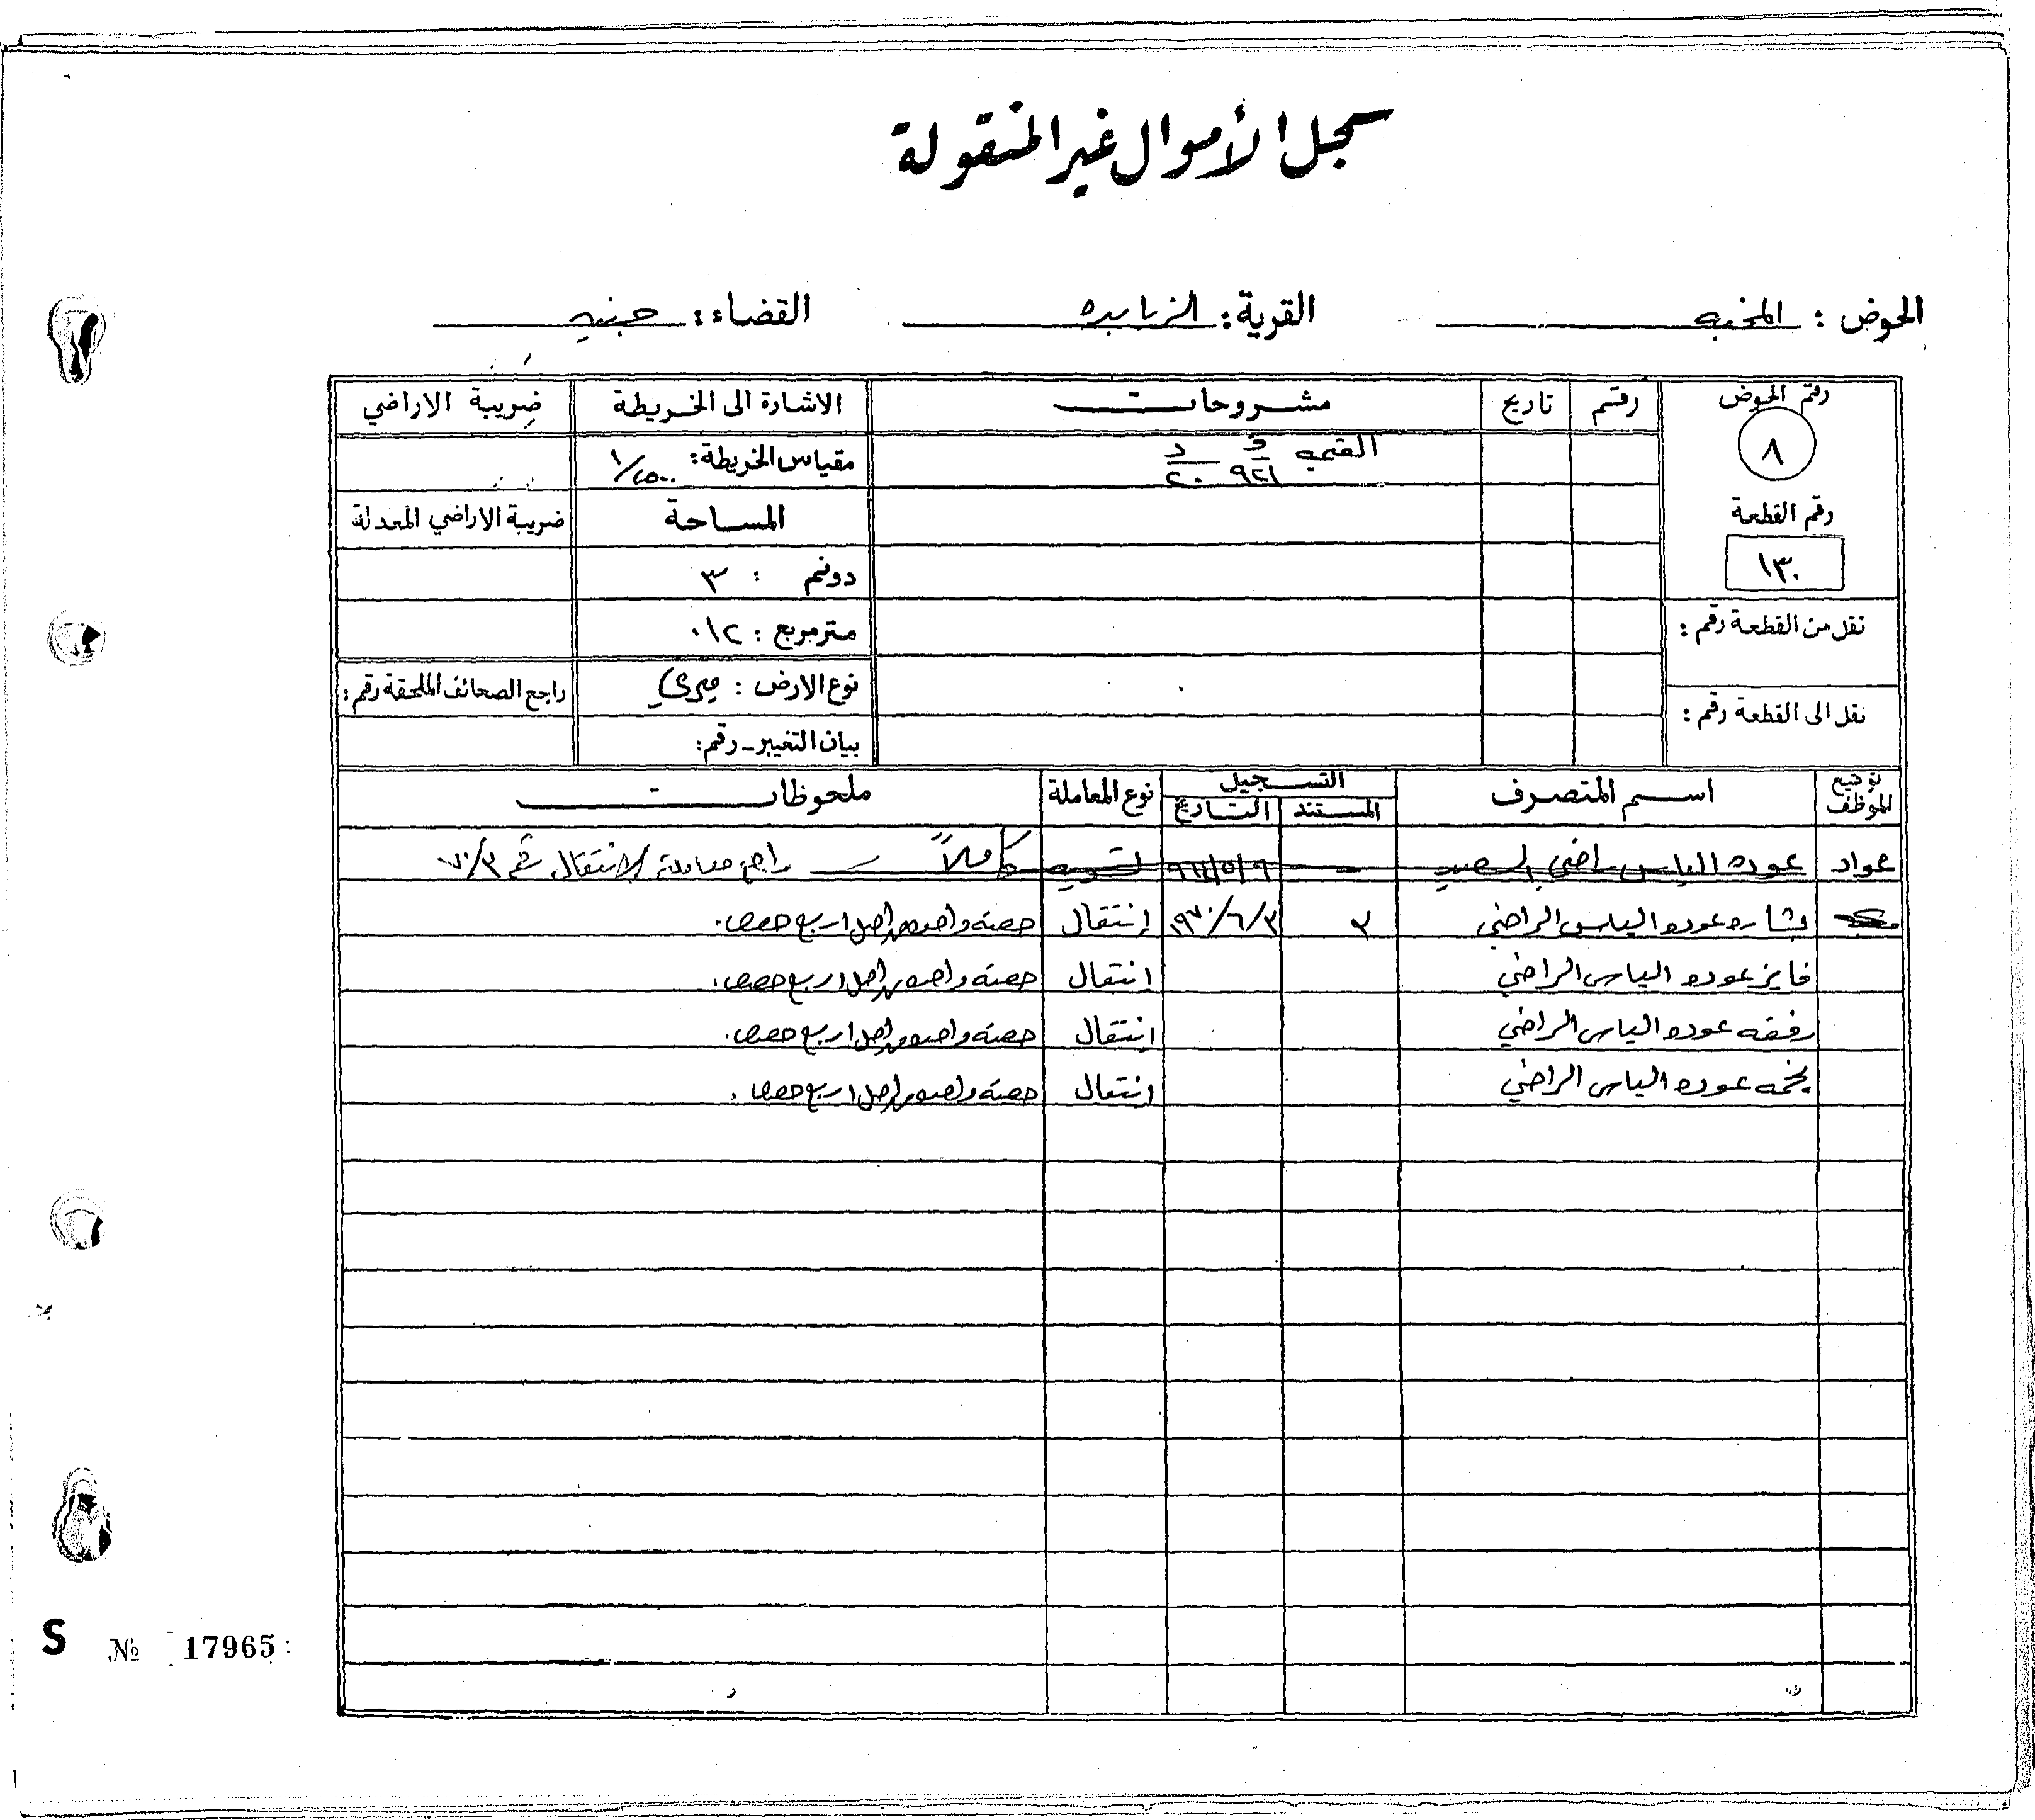 سجل الأموال غير المنقولة
الحوض : المخبه القرية: الزبابده القضاء: جنين
رقم الحوض رقم تاريخ مشروحات الاشارة الى الخريطة ضريبة الاراضي
٨ القيمه مقياس الخريطة: ١/٢٥٠٠
ف ٩٢١ د ٢٠
رقم القطعة المساحة ضريبة الاراضي المعدلة
١٣٠ دونم : ٣
نقل من القطعة رقم : متر مربع : ٠١٢
نوع الارض : ميري راجع الصحائف الملحقة رقم :
نقل الى القطعة رقم : بيان التغيير - رقم :
توقيع الموظف اسم المتصرف التسجيل نوع المعاملة ملحوظات
المستند التاريخ
عواد عوده الياس راضي السعيد - ٩٦٤/٥/٩ تسويه كاملاً راجع معاملة الانتقال رقم ٧٠/٣
بشاره عوده الياس الراضي ٣ ٩٧٠/٦/٣ انتقال حصة واحده من اصل اربع حصص .
فايز عوده الياس الراضي انتقال حصة واحده من اصل اربع حصص .
رفقه عوده الياس الراضي انتقال حصة واحده من اصل اربع حصص .
نجمه عوده الياس الراضي انتقال حصة واحده من اصل اربع حصص .
S № 17965